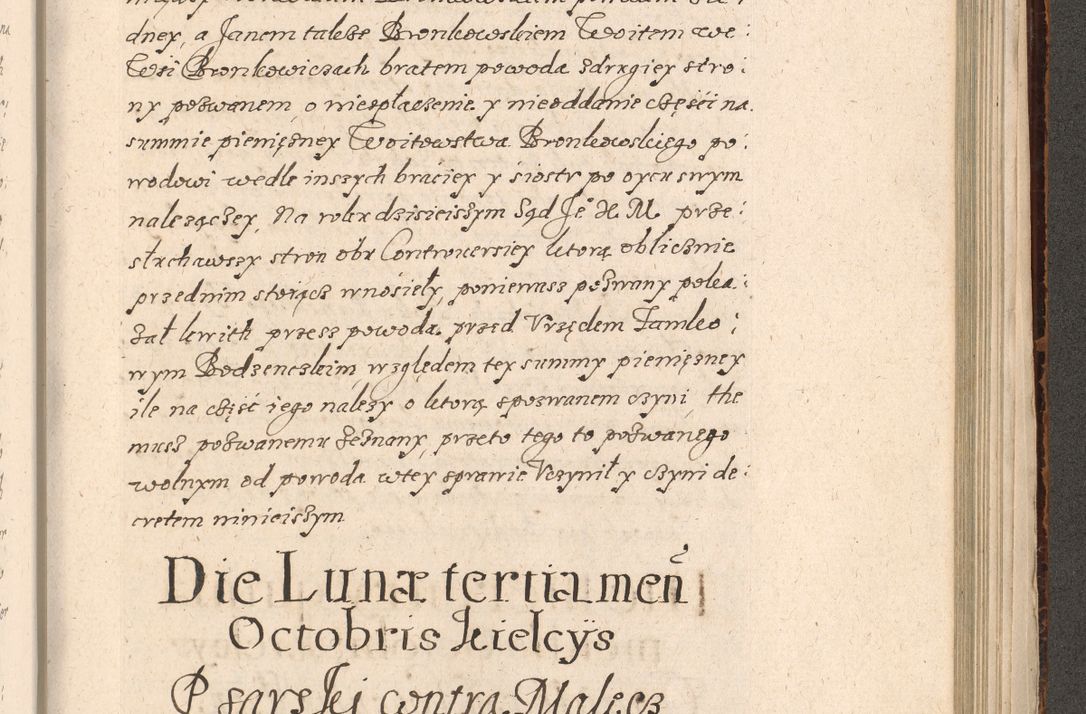 dney, a Janem takze Bronkowskiem Woitem we:
Wsi Bronkowiczach bratem powoda zdrugiey stro:
ny pozwanem, o niezapłaczenie y nieoddanie częsci na
summie pienięzney Woitowstwa Bronkowskiego po:
wodowi wedle inszych braciey y siostr po oycu swym
nalezączey, Na roku dzisieiszym Sąd Je° X. M. prze:
słuchawszy stron obu Controuersiey ktorą oblicznie
przednim stoiącz wnosiely, poniewasz pozwany poka:
zał kwith przesz powoda przed Vrzędem Zamko:
wym Bodzenczskim, względem tey summy pienięzney
ile na częsć iego nalezy o ktorą spozwanem czyni the
musz pozwanemu zeznany, przeto tego to pozwanego
wolnym od powoda wtey sprawie Vczynił y czyni de:
cretem ninieiszym
Die Lunæ tertia men̄
Octobris Kielcÿs
Psarski contra Malicz